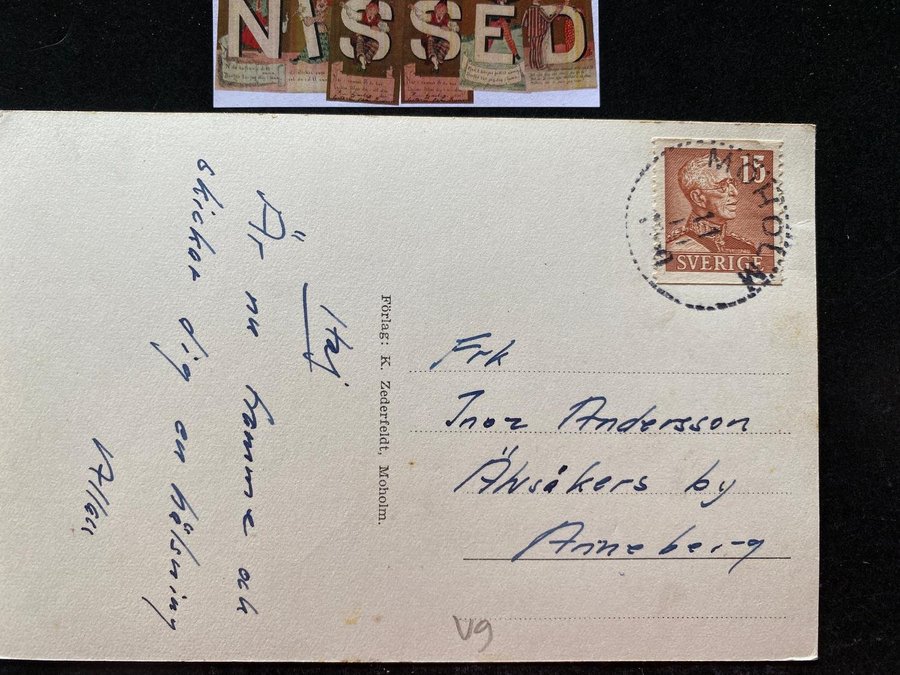 NISSED
15
SVERIGE
MOHOLM
11
Frk
Inez Andersson
Älvsåkers by
Anneberg
Förlag: K. Zederfeldt, Moholm.
Hej
Är nu hemma och
skickar dig en hälsning
Allan
Vg